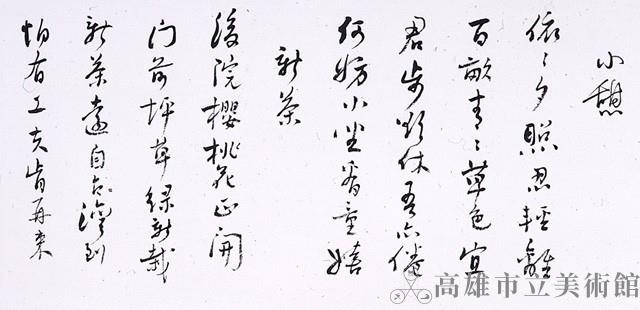 小憩
依〻夕照忍輕離
百畝青〻草色宜
君步姑休吾亦倦
何妨小坐看童嬉
新茶
後院櫻桃花正開
门前坪草綠新裁
新茶遠自台灣到
怕有工夫肯再來
高雄市立美術館